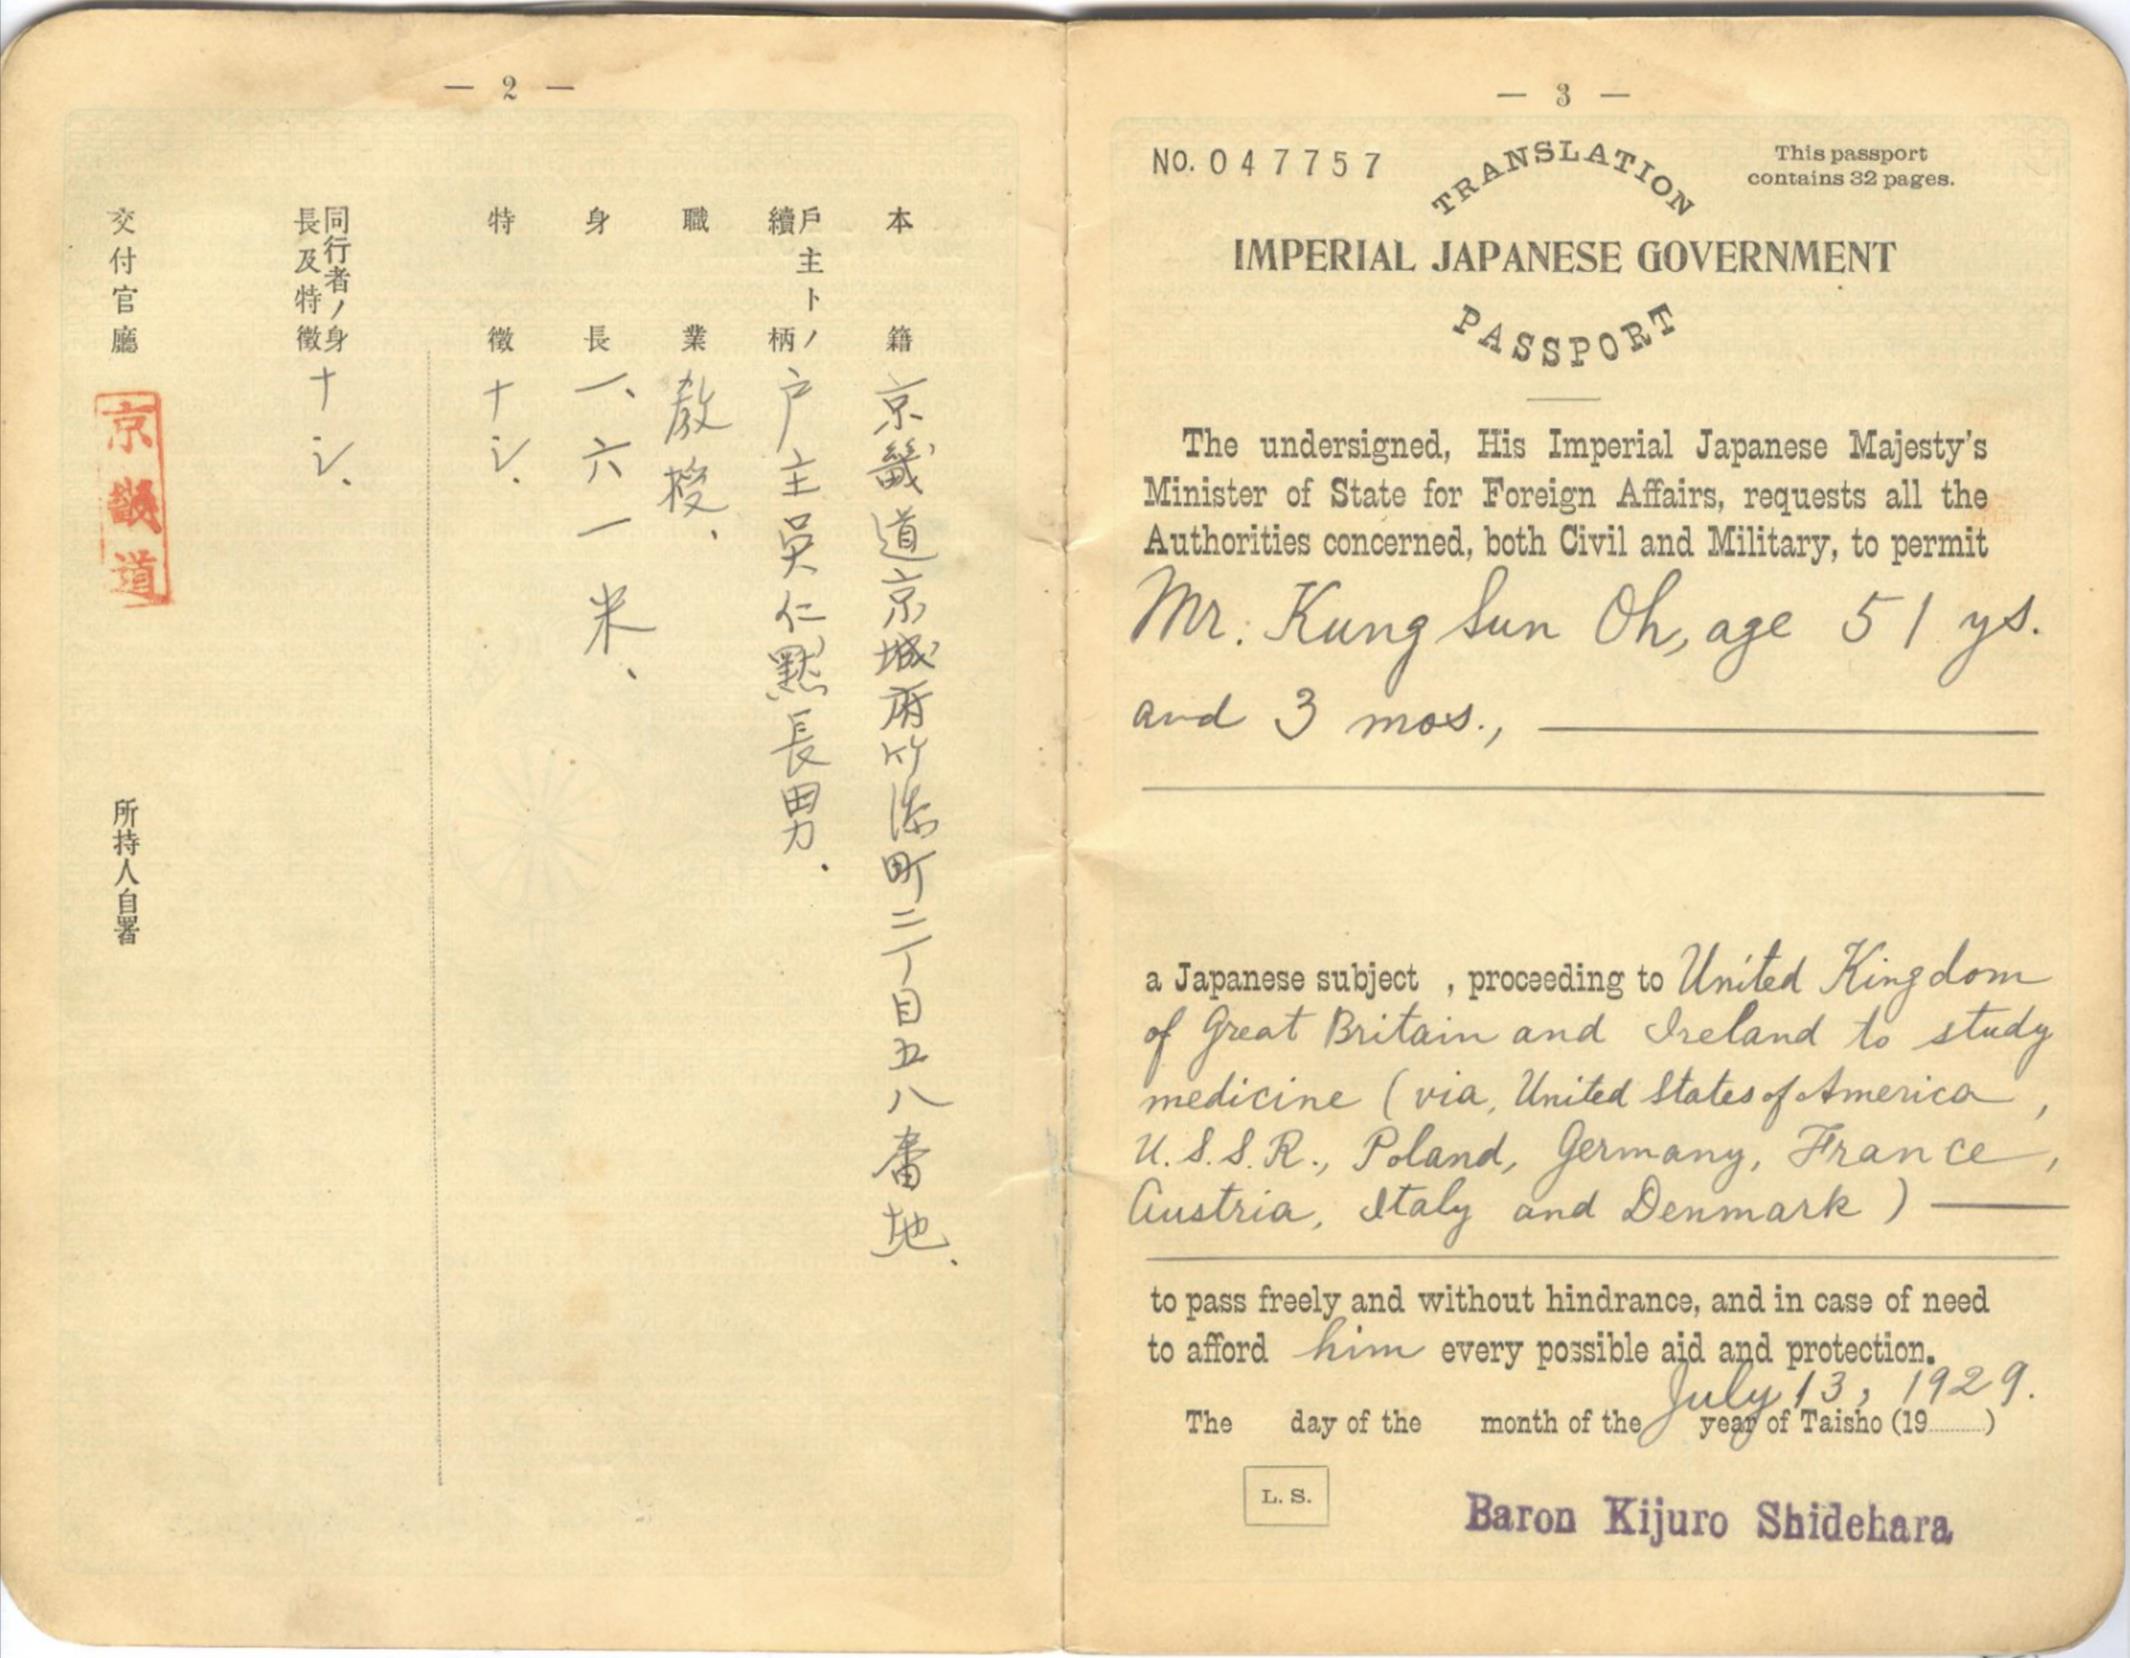 — 2 —
本籍 京畿道京城府竹添町三丁目五八番地、
戶主トノ續柄 戸主吳仁默長男.
職業 教授、
身長 一、六一米、
特徵 ナシ.
同行者ノ身長及特徵 ナシ.
交付官廳 京畿道
所持人自署
— 3 —
NO. 047757
TRANSLATION
This passport
contains 32 pages.
IMPERIAL JAPANESE GOVERNMENT
PASSPORT
The undersigned, His Imperial Japanese Majesty's
Minister of State for Foreign Affairs, requests all the
Authorities concerned, both Civil and Military, to permit
Mr. Kung Sun Oh, age 51 ys.
and 3 mos.,
a Japanese subject , proceeding to United Kingdom
of Great Britain and Ireland to study
medicine (via, United States of America,
U.S.S.R., Poland, Germany, France,
Austria, Italy and Denmark)
to pass freely and without hindrance, and in case of need
to afford him every possible aid and protection.
July 13, 1929.
The day of the month of the year of Taisho (19........)
L. S.
Baron Kijuro Shidehara